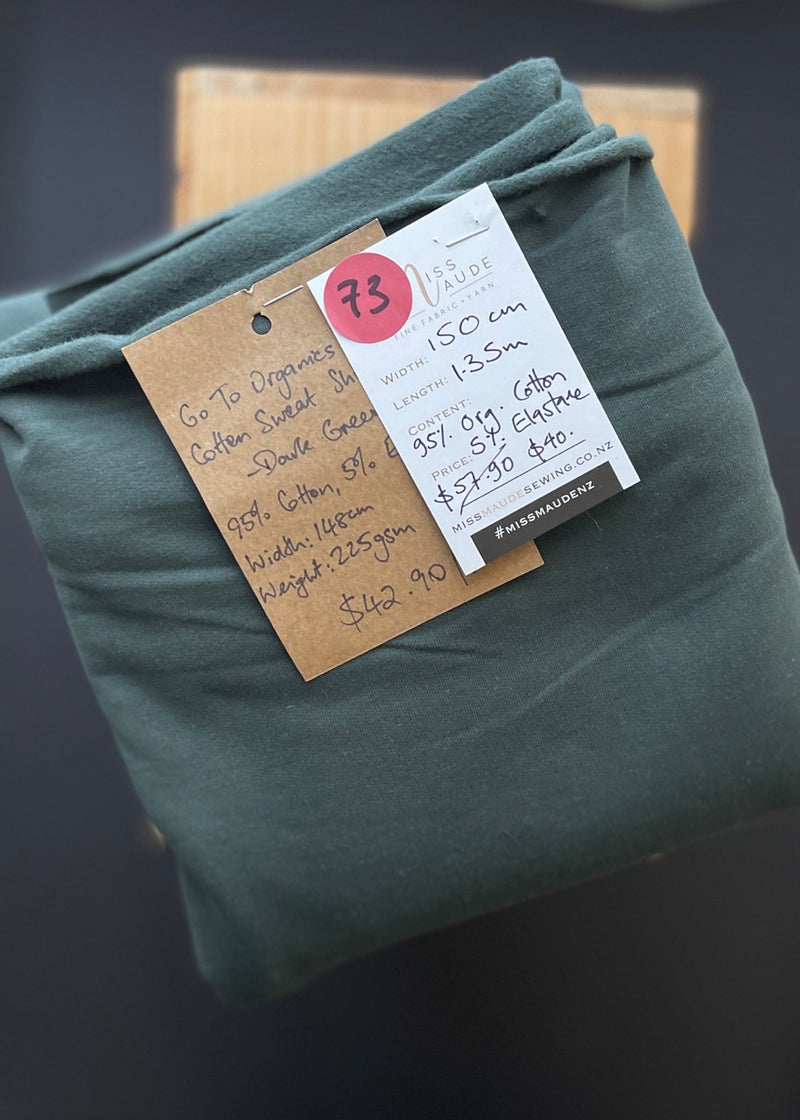 Go To Organics
Cotton Sweat
Dark Green
95% Cotton, 5% E
Width: 148cm
Weight: 225gsm
$42.90
73
MISS
MAUDE
FINE FABRIC + YARN
WIDTH: 150 cm
LENGTH: 1.35m
CONTENT:
95% Org. Cotton
5% Elastane
PRICE:
$57.90 $40.
MISSMAUDESEWING.CO.NZ
#MISSMAUDENZ